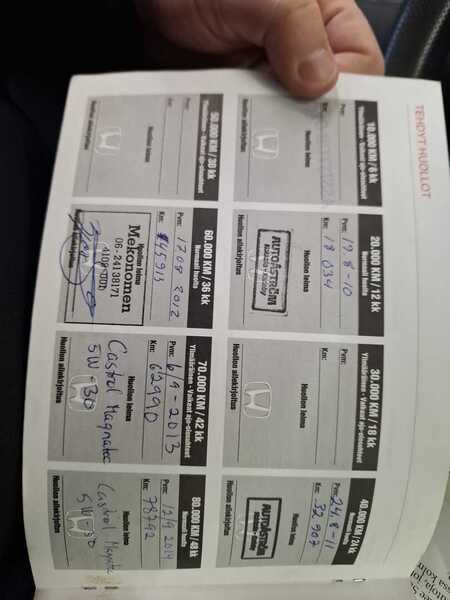 TEHDYT HUOLLOT
10.000 KM / 6 kk
Ylimääräinen - Vaikeat ajo-olosuhteet
Pvm:
Km:
Huollon leima
Huollon allekirjoitus
20.000 KM / 12 kk
Normaali huolto
Pvm: 17.8-10
Km: 18 034
Huollon leima
AUTOÅSTRÖM
Huollon allekirjoitus
30.000 KM / 18 kk
Ylimääräinen - Vaikeat ajo-olosuhteet
Pvm:
Km:
Huollon leima
Huollon allekirjoitus
40.000 KM / 24 kk
Normaali huolto
Pvm: 24.8-11
Km: 32 907
Huollon leima
AUTOÅSTRÖM
Huollon allekirjoitus
50.000 KM / 30 kk
Ylimääräinen - Vaikeat ajo-olosuhteet
Pvm:
Km:
Huollon leima
Huollon allekirjoitus
60.000 KM / 36 kk
Normaali huolto
Pvm: 17 08 2012
Km: 45913
Huollon leima
Mekonomen
06-24138171
Huollon allekirjoitus
70.000 KM / 42 kk
Ylimääräinen - Vaikeat ajo-olosuhteet
Pvm: 6/9-2013
Km: 62990
Huollon leima
Castrol Magnatec
5W-30
Huollon allekirjoitus
80.000 KM / 48 kk
Normaali huolto
Pvm: 12/9 2014
Km: 78742
Huollon leima
Castrol Magnatec
5W-30
Huollon allekirjoitus